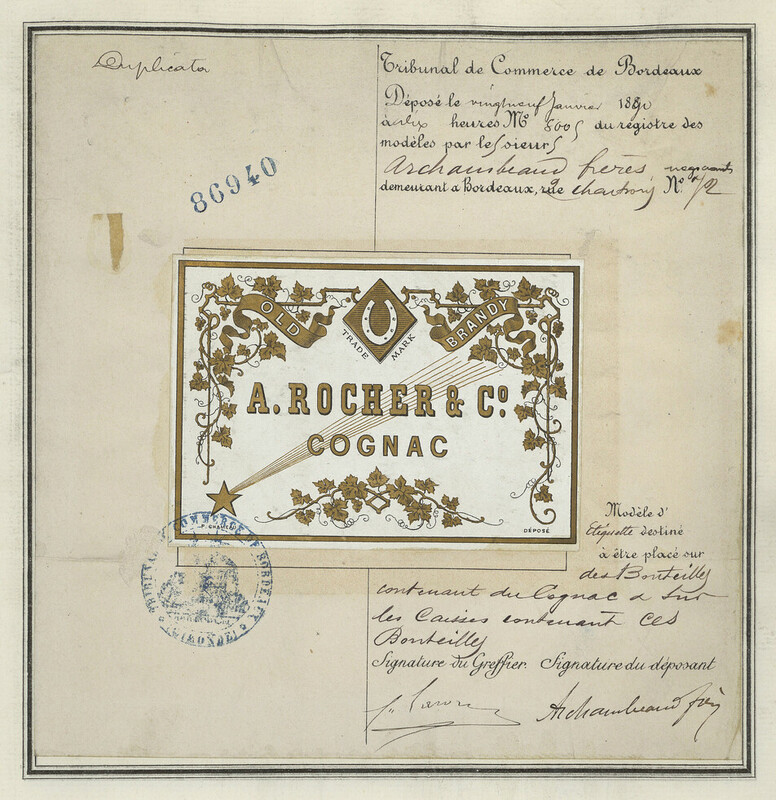 Duplicata
Tribunal de Commerce de Bordeaux
Déposé le vingtneuf Janvier 1890
à dix heures Nº 5005 du régistre des
modèles par les sieurs
Archambeaud frères négociants
demeurant a Bordeaux, rue Chartrons Nº
86940
OLD
BRANDY
TRADE MARK
A. ROCHER & Cº.
COGNAC
DÉPOSÉ
TRIBUNAL DE COMMERCE DE BORDEAUX
(GIRONDE)
Modèle d'
Etiquette destiné
à être placé sur
des Bouteilles
contenant du Cognac & sur
les Caisses contenant ces
Bouteilles
Signature du Greffier. Signature du déposant
Archambeaud frères